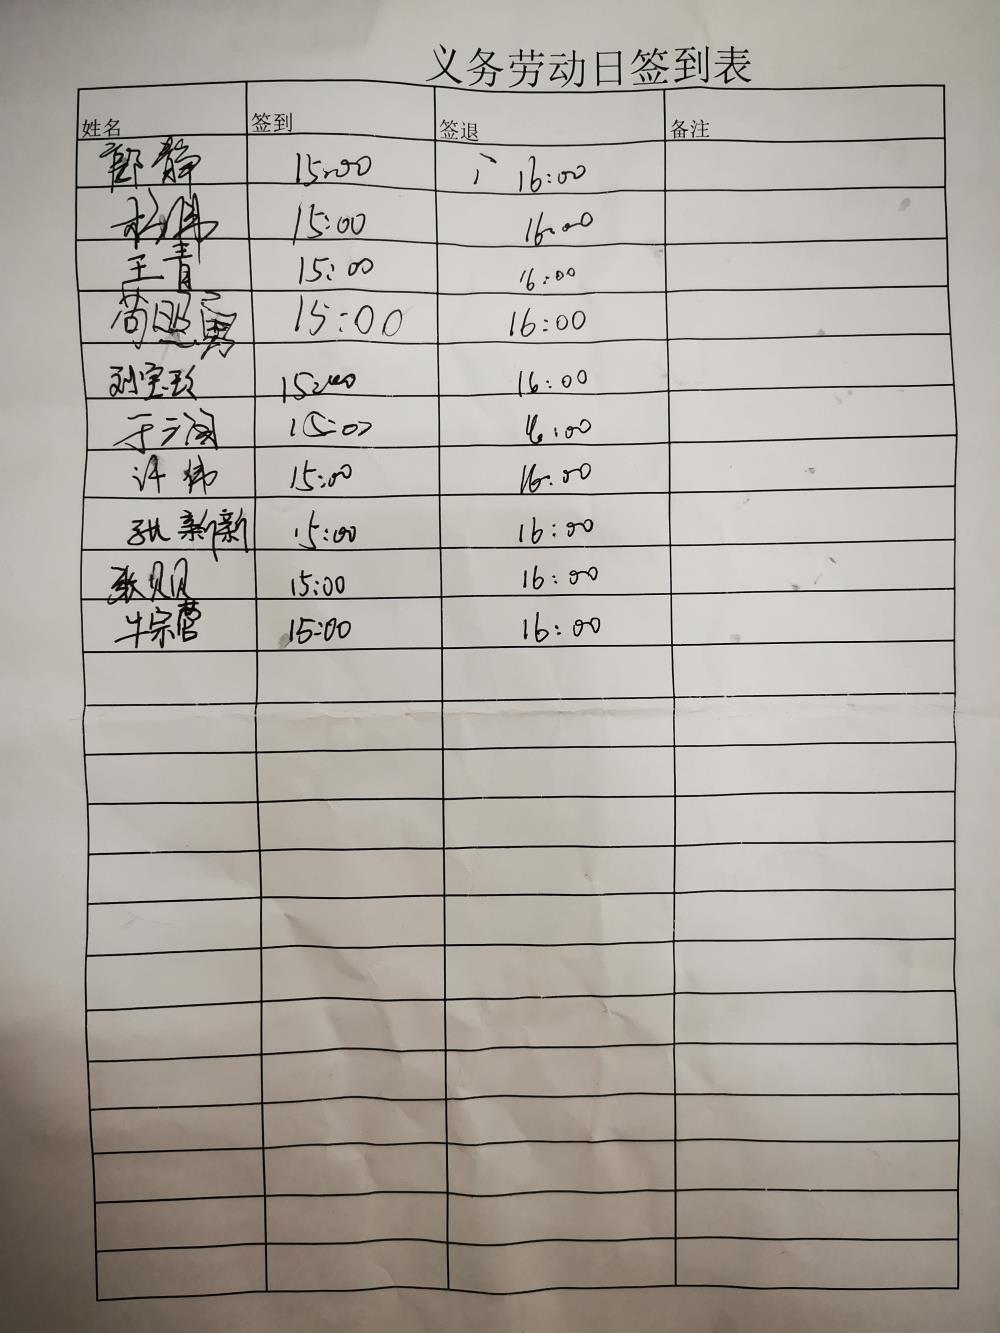 义务劳动日签到表
姓名 签到 签退 备注
郭静 15:00 16:00
杨伟 15:00 16:00
王青 15:00 16:00
苟 勇 15:00 16:00
孙宝珍 15:00 16:00
于 15:00 16:00
许伟 15:00 16:00
新新 15:00 16:00
张贝贝 15:00 16:00
牛宗营 15:00 16:00